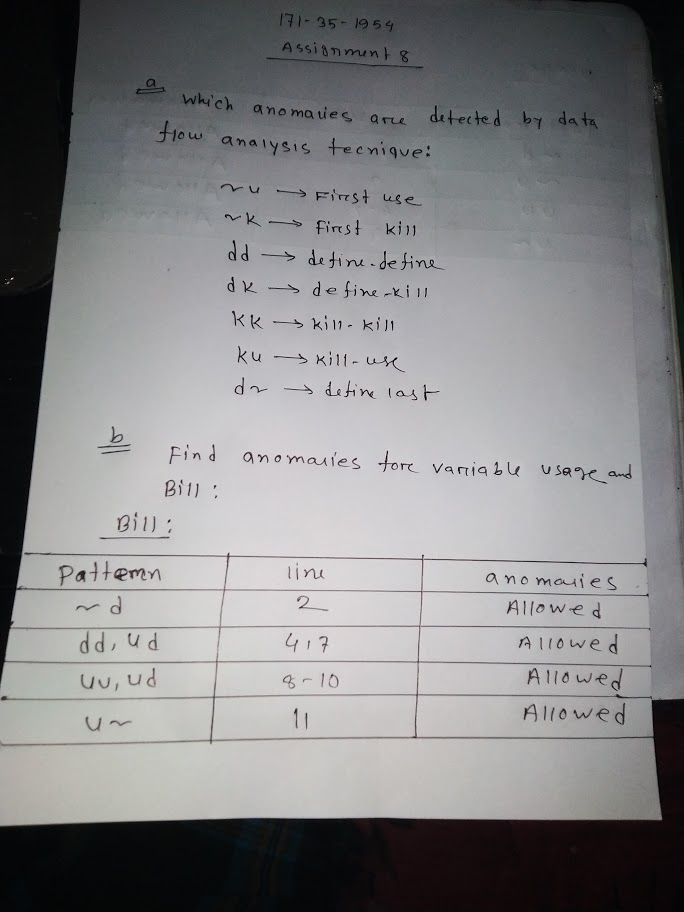 171-35-1954
Assignment 8
a
Which anomalies are detected by data
flow analysis tecnique:
~u → First use
~k → first kill
dd → define-define
dk → define-kill
kk → kill-kill
ku → kill-use
d~ → define last
b
Find anomalies fore variable usage and
Bill:
Bill:
Pattern line anomalies
~d 2 Allowed
dd, ud 4,7 Allowed
uu, ud 8-10 Allowed
u~ 11 Allowed